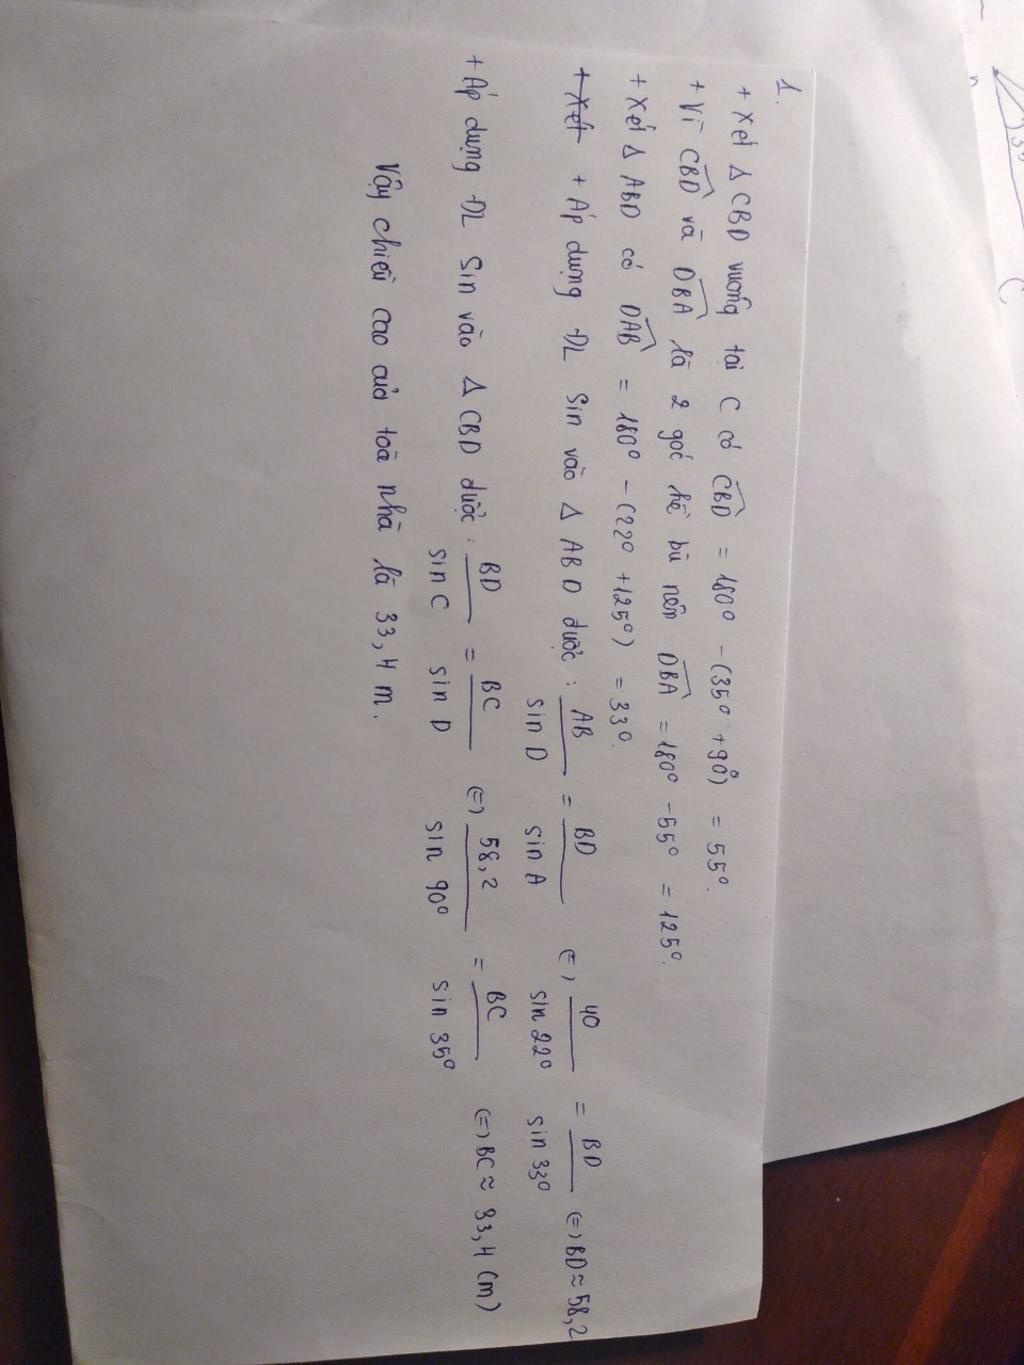 1.
+ Xét Δ CBD vuông tại C có CBD = 180° - (35° + 90°) = 55°.
+ Vì CBD và DBA là 2 góc kề bù nên DBA = 180° - 55° = 125°.
+ Xét Δ ABD có DAB = 180° - (22° + 125°) = 33°.
+ Xét + Áp dụng ĐL Sin vào Δ ABD được : AB/sin D = BD/sin A (=) 40/sin 22° = BD/sin 33° (=) BD ≈ 58,2
+ Áp dụng ĐL Sin vào Δ CBD được : BD/sin C = BC/sin D (=) 58,2/sin 90° = BC/sin 35° (=) BC ≈ 33,4 (m)
Vậy chiều cao của toà nhà là 33,4 m.
C